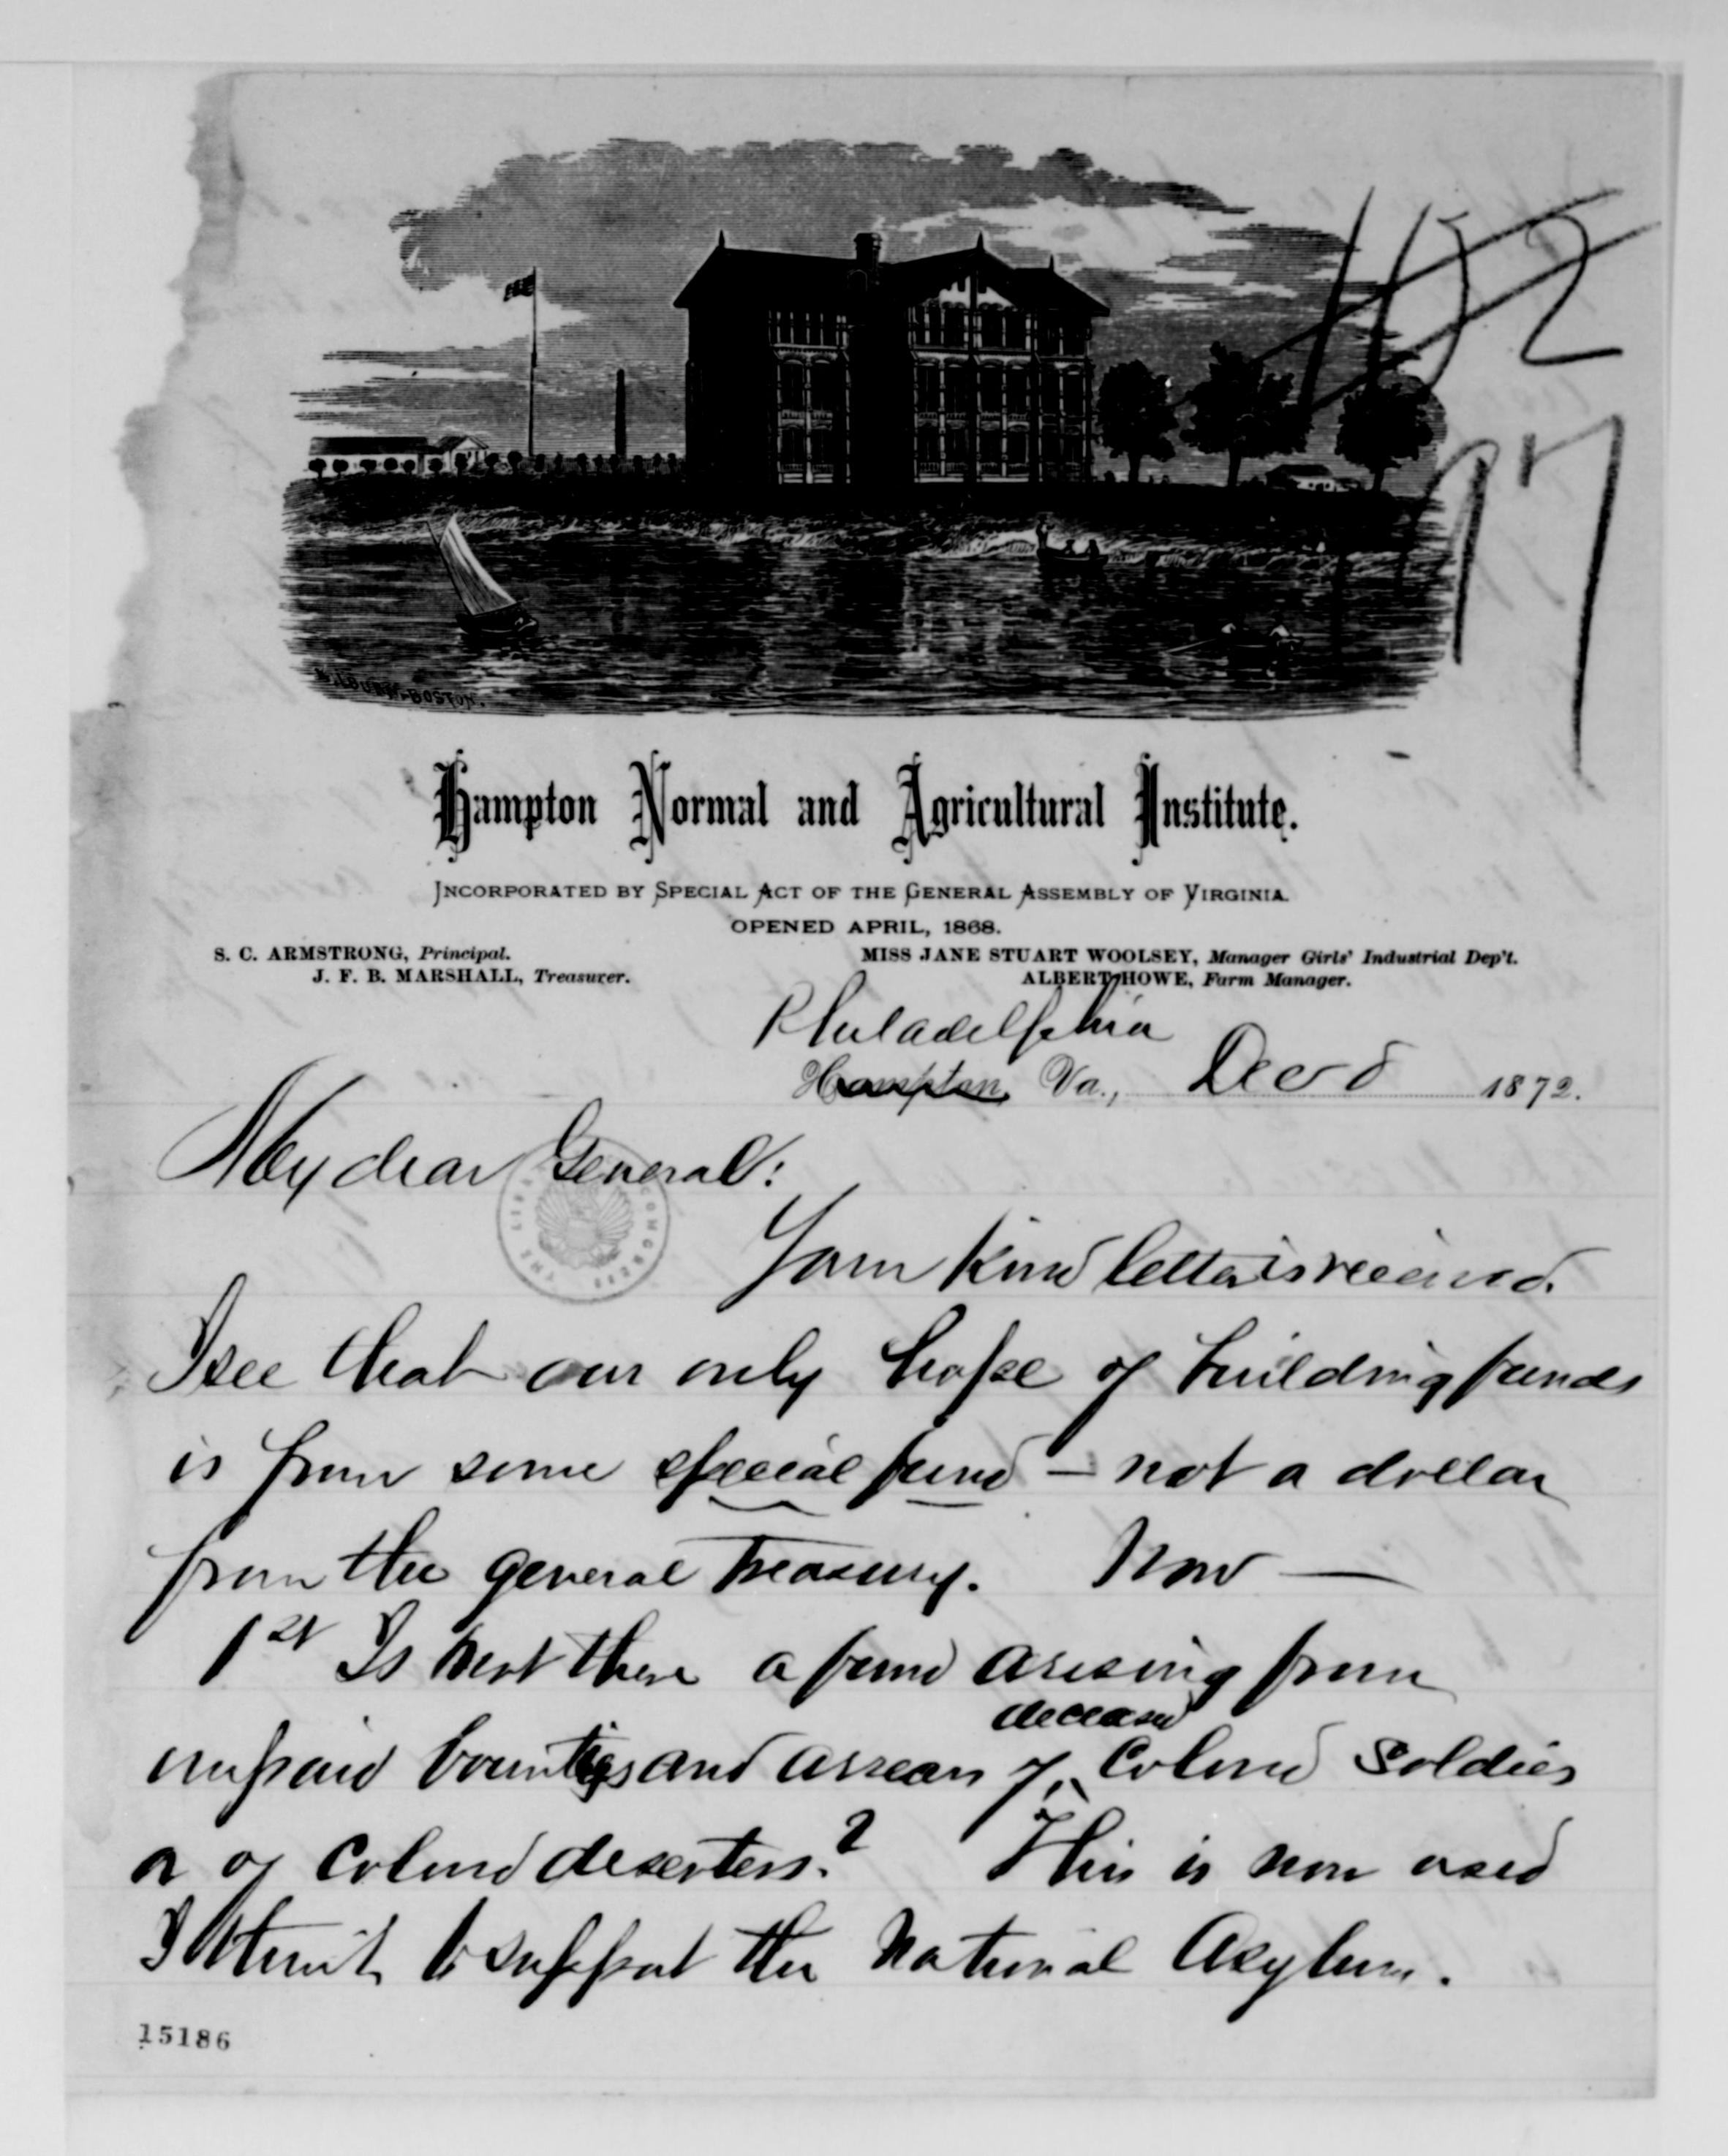 152
97
BOSTON.
Hampton Normal and Agricultural Institute.
INCORPORATED BY SPECIAL ACT OF THE GENERAL ASSEMBLY OF VIRGINIA.
OPENED APRIL, 1868.
S. C. ARMSTRONG, Principal.
J. F. B. MARSHALL, Treasurer.
MISS JANE STUART WOOLSEY, Manager Girls' Industrial Dep't.
ALBERT HOWE, Farm Manager.
Philadelphia
Hampton, Va., Dec 8 1872.
My dear General:
Your kind letter is received.
I see that our only hope of building funds
is from some special fund — not a dollar
from the general Treasury. Now —
1st Is not there a fund arising from
deceased
unpaid bounties and arrears of colored soldiers
or of colored deserters? This is now used
I think to support the National Asylum.
THE LIBRARY CONGRESS
15186